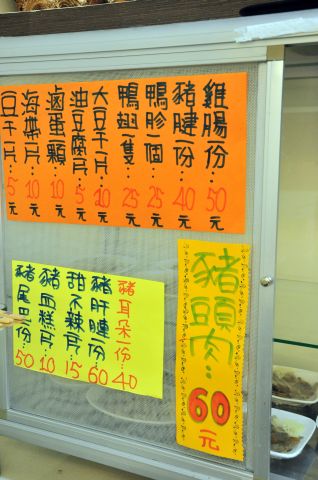 雞腸一份50元
豬腱一份40元
鴨胗一個25元
鴨翅一隻25元
大豆干一片10元
油豆腐一片5元
滷蛋一顆10元
海帶一片10元
豆干一片5元
豬頭肉…60元
豬耳朵一份40
豬肝腫一份60
甜不辣一片15
豬血糕一片10
豬尾巴一份50